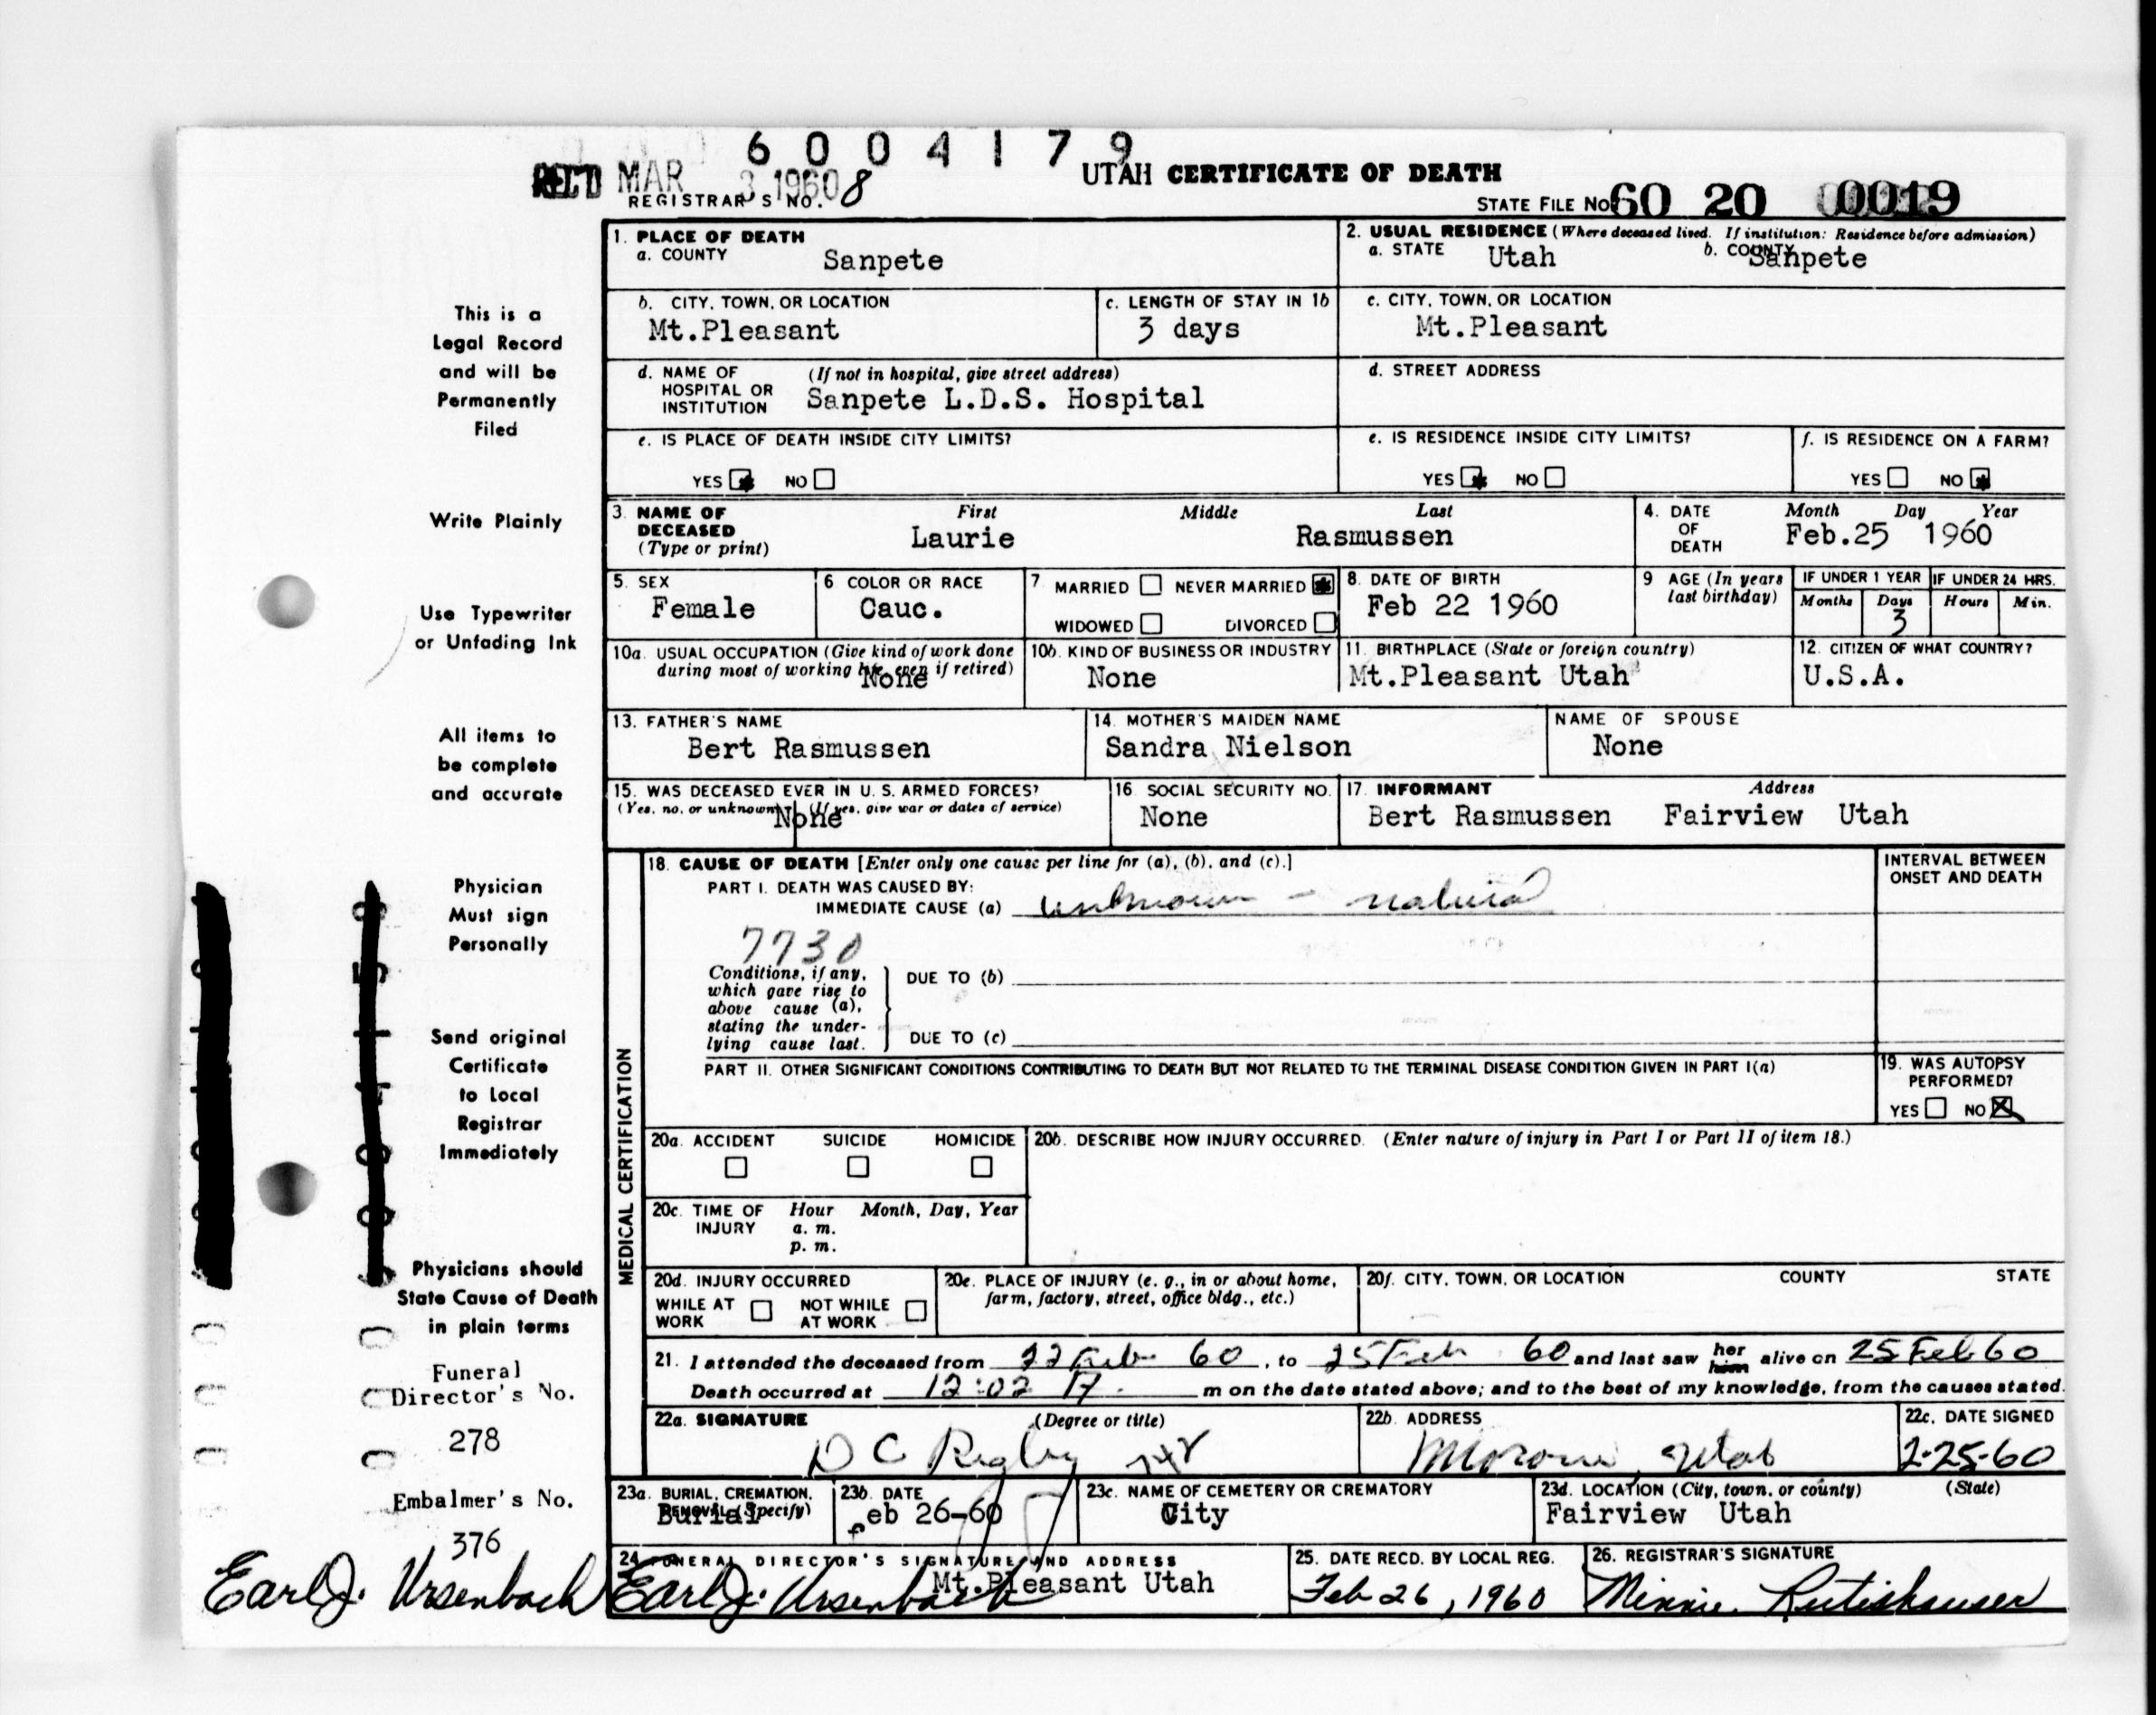 6004179
REC'D MAR 3 1960
UTAH CERTIFICATE OF DEATH
REGISTRAR'S NO. 8
STATE FILE NO. 60 20 0019
1. PLACE OF DEATH
a. COUNTY Sanpete
2. USUAL RESIDENCE (Where deceased lived. If institution: Residence before admission)
a. STATE Utah b. COUNTY Sanpete
b. CITY, TOWN, OR LOCATION
Mt.Pleasant
c. LENGTH OF STAY IN 1b
3 days
c. CITY, TOWN, OR LOCATION
Mt.Pleasant
d. NAME OF HOSPITAL OR INSTITUTION (If not in hospital, give street address)
Sanpete L.D.S. Hospital
d. STREET ADDRESS
e. IS PLACE OF DEATH INSIDE CITY LIMITS?
YES NO
e. IS RESIDENCE INSIDE CITY LIMITS?
YES NO
f. IS RESIDENCE ON A FARM?
YES NO
3. NAME OF DECEASED (Type or print)
First Middle Last
Laurie Rasmussen
4. DATE OF DEATH
Month Day Year
Feb.25 1960
5. SEX
Female
6 COLOR OR RACE
Cauc.
7 MARRIED NEVER MARRIED
WIDOWED DIVORCED
8. DATE OF BIRTH
Feb 22 1960
9 AGE (In years last birthday)
IF UNDER 1 YEAR
Months Days
3
IF UNDER 24 HRS.
Hours Min.
10a. USUAL OCCUPATION (Give kind of work done during most of working life, even if retired)
None
10b. KIND OF BUSINESS OR INDUSTRY
None
11. BIRTHPLACE (State or foreign country)
Mt.Pleasant Utah
12. CITIZEN OF WHAT COUNTRY?
U.S.A.
13. FATHER'S NAME
Bert Rasmussen
14. MOTHER'S MAIDEN NAME
Sandra Nielson
NAME OF SPOUSE
None
15. WAS DECEASED EVER IN U. S. ARMED FORCES?
(Yes, no, or unknown) (If yes, give war or dates of service)
None
16 SOCIAL SECURITY NO.
None
17. INFORMANT Address
Bert Rasmussen Fairview Utah
MEDICAL CERTIFICATION
18. CAUSE OF DEATH [Enter only one cause per line for (a), (b), and (c).]
PART I. DEATH WAS CAUSED BY:
IMMEDIATE CAUSE (a) unknown - natural
7730
Conditions, if any, which gave rise to above cause (a), stating the underlying cause last.
DUE TO (b)
DUE TO (c)
INTERVAL BETWEEN ONSET AND DEATH
PART II. OTHER SIGNIFICANT CONDITIONS CONTRIBUTING TO DEATH BUT NOT RELATED TO THE TERMINAL DISEASE CONDITION GIVEN IN PART I(a)
19. WAS AUTOPSY PERFORMED?
YES NO
20a. ACCIDENT SUICIDE HOMICIDE
20b. DESCRIBE HOW INJURY OCCURRED. (Enter nature of injury in Part I or Part II of item 18.)
20c. TIME OF INJURY Hour Month, Day, Year
a. m.
p. m.
20d. INJURY OCCURRED
WHILE AT WORK NOT WHILE AT WORK
20e. PLACE OF INJURY (e. g., in or about home, farm, factory, street, office bldg., etc.)
20f. CITY, TOWN, OR LOCATION COUNTY STATE
21. I attended the deceased from 22 Feb 60, to 25 Feb 60 and last saw her him alive on 25 Feb 60
Death occurred at 12:02 m on the date stated above; and to the best of my knowledge, from the causes stated.
22a. SIGNATURE (Degree or title)
D C Rigby
22b. ADDRESS
Moroni, Utah
22c. DATE SIGNED
2-25-60
23a. BURIAL, CREMATION, REMOVAL (Specify)
Burial
23b. DATE
Feb 26-60
23c. NAME OF CEMETERY OR CREMATORY
City
23d. LOCATION (City, town, or county) (State)
Fairview Utah
24 FUNERAL DIRECTOR'S SIGNATURE AND ADDRESS
Earl J. Ursenbach Mt.Pleasant Utah
25. DATE RECD. BY LOCAL REG.
Feb 26, 1960
26. REGISTRAR'S SIGNATURE
Minnie Rutishauser
This is a
Legal Record
and will be
Permanently
Filed
Write Plainly
Use Typewriter
or Unfading Ink
All items to
be complete
and accurate
Physician
Must sign
Personally
Send original
Certificate
to Local
Registrar
Immediately
Physicians should
State Cause of Death
in plain terms
Funeral
Director's No.
278
Embalmer's No.
376
Earl J. Ursenbach